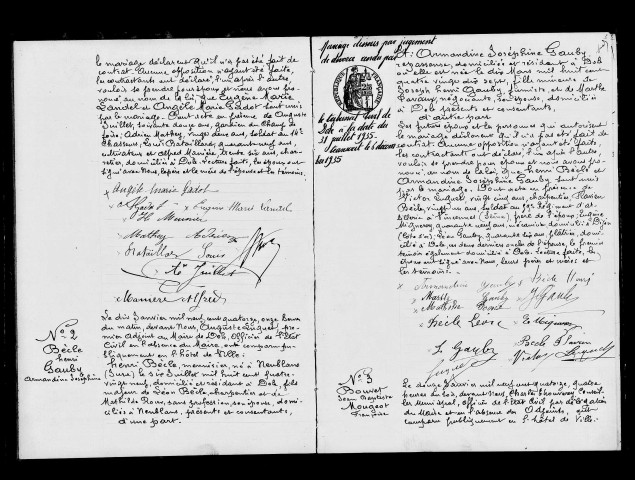 le mariage déclarent qu'il n'a pas été fait de
contrat. Aucune opposition n'ayant été faite,
les contractants ont déclaré, l'un après l'autre,
vouloir se prendre pour époux et nous avons pro-
noncé au nom de la loi que Eugène Marie
Landel et Angèle Marie Jadot sont unis
par le mariage. Dont acte en présence de Auguste
Juillet, ans, gardien du champ de
foire, Adrien Mathey, vingt deux ans, soldat au
Chasseurs, Louis Bataillard, quarante neuf ans,
cultivateur et Alfred Manière, trente six ans, char-
retier, domiciliés à Dole. Lecture faite, les époux ont
signé avec Nous, le père et la mère de l'épouse et les témoins.
Angèle Marie Jadot
Eugène Marie Landel
Mathey Adrien
Bataillard Louis
Juillet
Manière Alfred
No 2
Bècle
Henri
Gauby
Armandine Joséphine
Le dix Janvier mil neuf cent quatorze, onze heures
du matin, devant Nous, Auguste, pre-
mier Adjoint au Maire de Dole, Officier de l'Etat
Civil en l'absence du Maire, ont comparu pu-
bliquement en l'hôtel de Ville:
Henri Bècle, menuisier, né à Neublans
(Jura) le six Juillet mil huit cent quatre
vingt neuf, domicilié et résidant à Dole, fils
majeur de Léon Bècle, charpentier et de
Mathilde Roux, sans profession, ses époux, domi-
ciliés à Neublans, présents et consentants,
d'une part.
Mariage dissous par jugement
de divorce rendu par
le Tribunal Civil de
Dole à la date du
31 juillet 1925.
Transcrit le 6 décembre
1925
Et Armandine Joséphine Gauby
repasseuse, domiciliée et résidant à Dole
où elle est née le dix Mars mil huit cent
quatre vingt dix sept, fille mineure de
Joseph Henri Gauby, fumiste, et de Marthe
négociante, ses époux, domiciliés
à Dole, présents et consentants,
d'autre part.
Les futurs époux et les personnes qui autorisent
le mariage déclarent qu'il n'a pas été fait de
contrat. Aucune opposition n'ayant été faite,
les contractants ont déclaré, l'un après l'autre,
vouloir se prendre pour époux et nous avons pro-
noncé, au nom de la loi, que Henri Bècle et
Armandine Joséphine Gauby sont unis
par le mariage. Dont acte en présence de
Victor, vingt cinq ans, charpentier,
Bècle, vingt un ans, soldat au Régiment d'ar-
tillerie à Vincennes (Seine), frère de l'époux, Eugène
Mignerey, quarante neuf ans, mécanicien, domicilié à Dijon
(Côte d'or), Léon Gauby, quarante six ans, plâtrier, domi-
cilié à Dole, ces deux derniers oncles de l'épouse, le premier
témoin également domicilié à Dole. Lecture faite, les
époux ont signé avec Nous, leurs pères et mères et
les témoins.
Armandine Gauby Bècle Henri
Marthe Gauby J Gauby
Mathilde
Bècle Léon E Mignerey
L Gauby Bècle
Victor
No 3
Bouvet
Jean Baptiste
Mougeot
Françoise
Le douze Janvier mil neuf cent quatorze, quatre
heures du soir, devant Nous, Charles, Conseil-
ler Municipal, Officier de l'Etat Civil par délégation
du Maire et en l'absence des Adjoints, ont
comparu publiquement en l'hôtel de Ville: